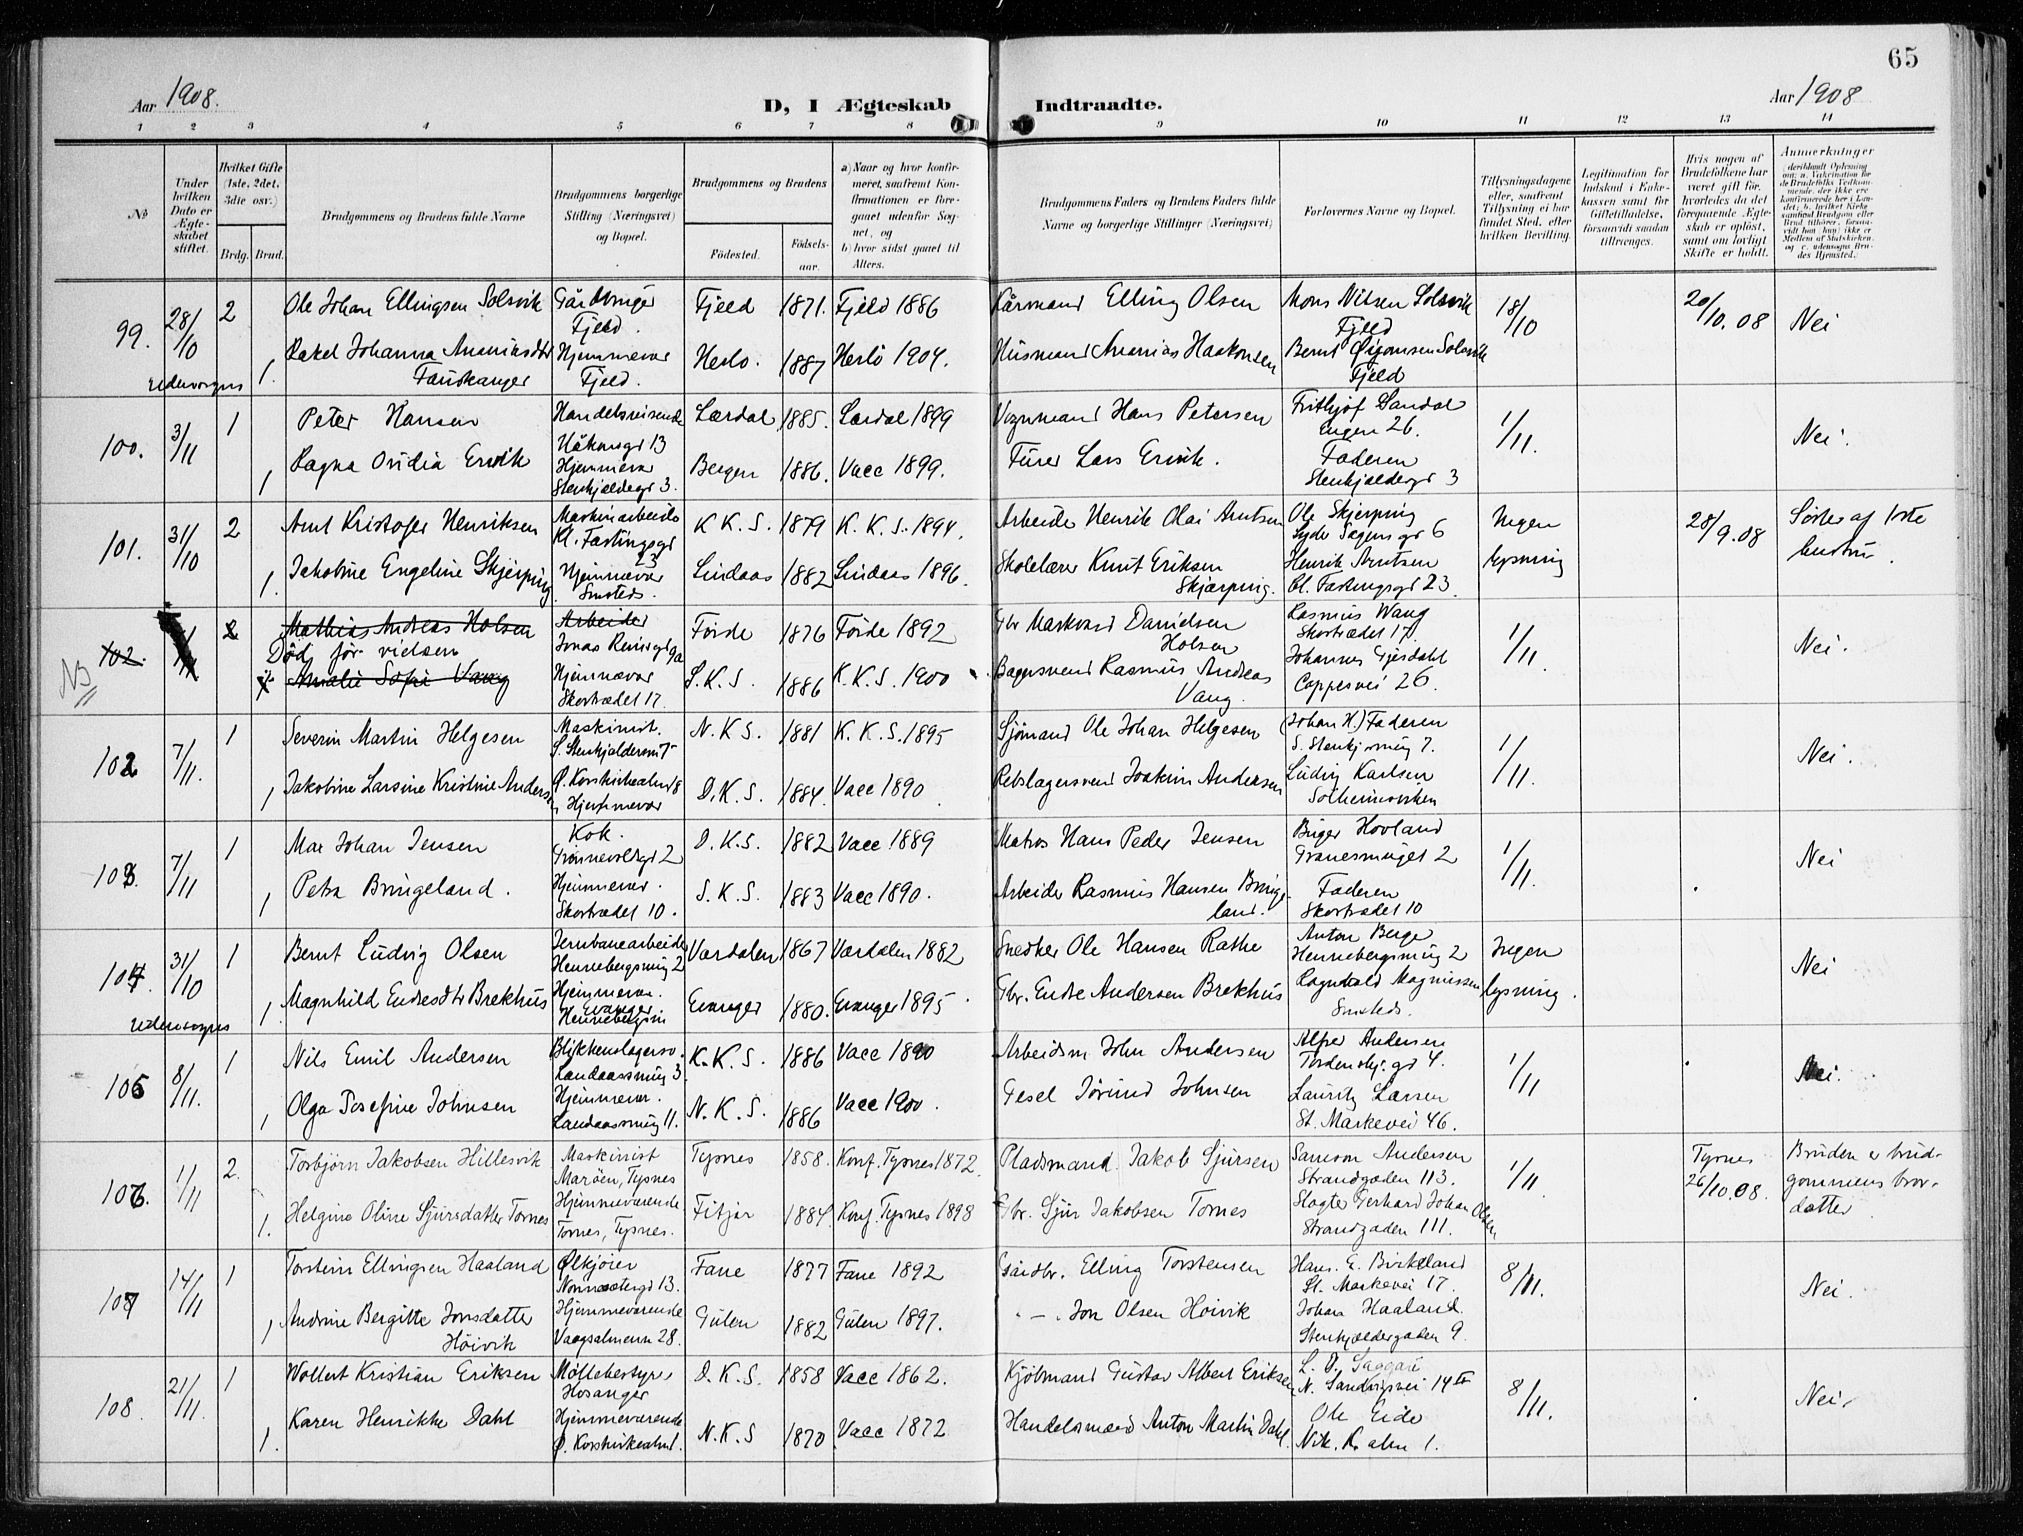 65
Aar 1908.
D, I Ægteskab Indtraadte.
Aar 1908
1 2 3 4 5 6 7 8 9 10 11 12 13 14
№
Under hvilken Dato er Ægteskabet stiftet.
Hvilket Gifte (1ste, 2det, 3die osv.)
Brdg. Brud.
Brudgommens og Brudens fulde Navne
Brudgommens borgerlige Stilling (Næringsvei) og Bopæl.
Brudgommens og Brudens
Fødested.
Fødselsaar.
a) Naar og hvor konfirmeret, saafremt Konfirmationen er foregaaet udenfor Sognet, og
b) hvor sidst gaaet til Alters.
Brudgommens Faders og Brudens Faders fulde Navne og borgerlige Stillinger (Næringsvei)
Forlovernes Navne og Bopæl.
Tillysningsdagene eller, saafremt Tillysning ei har fundet Sted, efter hvilken Bevilling.
Legitimation for Indskud i Enkekassen samt for Giftetilladelse, forsaavidt saadan tiltrænges.
Hvis nogen af Brudefolkene har været gift før, hvorledes da det foregaaende Ægteskab er opløst, samt om lovligt Skifte er holdt.
Anmerkninger
99. 28/10 2 Ole Johan Ellingsen Solsvik Gårdbruger Fjeld 1871. Fjeld 1886 Kårmand Elling Olsen Mons Nilsen Solsvik 18/10 20/10.08 Nei
Fjeld. Fjeld
1. Rakel Johanna Ananiasdtr Hjemmevær Herlo. 1887 Herlö 1904. Husmand Ananias Haakonsen Bernt Solsvik
Udensogns Fauskanger Fjeld. Fjeld
100. 3/11 1 Peter Hansen Handelsreisende Lærdal 1885. Lærdal 1899 Vognmand Hans Petersen Fritjof Sandal 1/11. Nei.
Håkonsgd 13 Engen 26.
1 Ragna Ovidia Ervik Hjemmevær Bergen 1886. Vacc 1899. Furer Lars Ervik. Faderen
Stenkjeldergd 3. Stenkjeldergd 3
101. 31/10 2 Arnt Kristofer Henriksen Maskinarbeide K K. S. 1879 K. K. S. 1894. Arbeide Henrik Olai Arntsen Ole Skjerping Ingen 28/9.08 Søster af 1ste
Kl. Fastingsgd 23 Lyder Sagensgd 6 hustru.
1. Jakobine Engeline Skjerping Hjemmevær Lindaas 1882 Lindaas 1896. Skolelærer Knut Eriksen Henrik Arntsen lysning
Smsteds. Skjærping. Kl. Fastingsgd 23.
NB
102. 2 Mathias Andreas Holsen Arbeider Førde 1876 Førde 1892 Gbr Markvard Danielsen Rasmus Wang 1/11. Nei.
Død før vielsen Jonas Reinsgd 9a Holsen Skostrædet 17.
Amalie Sofie Vang Hjemmevær S.K.S. 1886 K.K.S. 1900 Bagersvend Rasmus Andreas Johannes Gjesdahl
Skostrædet 17. Vang. Coppesvei 26.
102 7/11. 1 Severin Martin Helgesen Maskinist. N.K.S. 1881 K. K. S. 1895 Sjømand Ole Johan Helgesen (Johan H.) Faderen 1/11. Nei.
S. Stenkjeldersm 7 S. Stenkjsmug 7.
1 Jakobine Larsine Kristine Andersen Ø. Korskirkealm 8 D.K.S. 1884. Vacc 1890 Rebslagersvend Joakim Andersen Ludvig Karlsen
Hjemmevær Solheimsviken
103. 7/11 1 Max Johan Jensen Kok. D.K.S. 1882 Vacc 1889 Matros Hans Peder Jensen Birger Hovland 1/11. Nei
Grønnevoldgd 2 Granesmuget 2
1 Petra Bringeland. Hjemmevær. S.K.S. 1883 Vacc 1890. Arbeider Rasmus Hansen Bringe- Faderen
Skostrædet 10. land. Skostrædet 10
104. 31/10 1 Bernt Ludvig Olsen Jernbanearbeide Værdalen 1867 Værdalen 1882 Snedker Ole Hansen Rathe Anton Berge Ingen Nei
Hennebergsmug 2 Hennebergsmug 2
1 Magnhild Endresdtr Brekhus Hjemmevær. Evanger 1880. Evanger 1895. Gbr. Endre Andersen Brekhus Ragnvald Magnussen lysning.
Udensogns Evanger Smsteds.
105 8/11. 1 Nils Emil Andersen Blikkenslagersv. K.K.S. 1886 Vacc 1890 Arbeidsm. John Andersen Alfred Andersen 1/11 Nei.
Landaassmug 3 Tordenskj.gd 4.
1 Olga Josefine Johnsen Hjemmevær. N.K.S. 1886 Vacc 1900. Gesel Jørund Johnsen Lauritz Larsen
Landaassmug 11. St. Markevei 46.
106. 1/11 2. Torbjørn Jakobsen Hillesvik Maskinist Tysnes 1858. Konf. Tysnes 1872. Pladsmand Jakob Sjursen Samson Andersen 1/11. Tysnes Bruden er brud-
Marøen, Tysnes Strandgaden 113. 26/10.08. gommens bror-
1. Helgine Oline Sjursdatter Tornes Hjemmeværende Fitjar 1884 Konf. Tysnes 1898 Gbr. Sjur Jakobsen Tornes Slagter Gerhard Johan Olsen datter
Tornes, Tysnes. Strandgaden 111.
107 14/11 1 Torstein Ellingsen Haaland Ølkjører Fane 1877 Fane 1892 Gårdbr. Elling Torstensen Hans. E. Birkeland 8/11. Nei.
Nonnestergd 13. St. Markevei 17.
1 Andrine Bergitte Jonsdatter Hjemmeværende Gulen 1882 Gulen 1897. " - . Jon Olsen Høivik Johan Haaland.
Høivik Vaagsalmenn 28. Stenkjeldergaden 9.
108. 21/11. 1 Wollert Kristian Eriksen Møllebestyre D.K.S. 1858 Vacc 1862. Kjøbmand Gustav Albert Eriksen L. D. 8/11. Nei.
Hosanger N. Sandvigsvei 14 II
1. Karen Henrikke Dahl Hjemmeværende N.K.S 1870 Vacc 1872 Handelsmand Anton Martin Dahl. Ole Eide
Ø. Korskirkealm 1. Nik. K. alm 1.